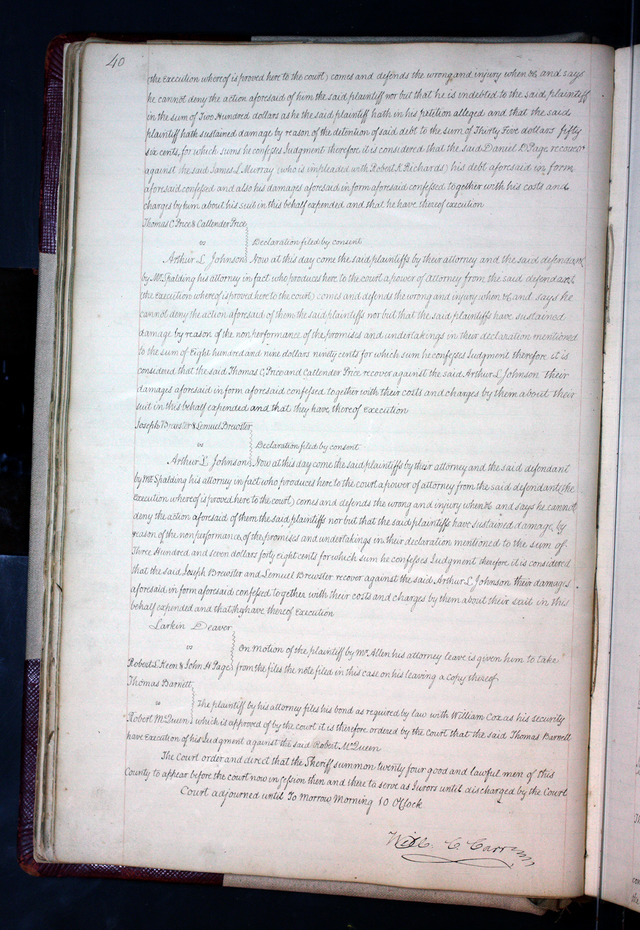 40
(the execution whereof is proved here to the court) comes and defends the wrong and injury when &c, and says
he cannot deny the action aforesaid of him the said plaintiff nor but that he is indebted to the said plaintiff
in the sum of Two Hundred dollars as he the said plaintiff hath in his petition alleged and that the said
plaintiff hath sustained damage by reason of the detention of said debt to the sum of Thirty Five dollars fifty
six cents, for which sums he confesses Judgment therefore it is considered that the said Daniel D Page recover
against the said James L Murray (who is impleaded with Robert K Richards) his debt aforesaid in form
aforesaid confessed and also his damages aforesaid in form aforesaid confessed together with his costs and
charges by him about his suit in this behalf expended and that he have thereof execution
Thomas C, Price & Callender Price
vs Declaration filed by consent
Arthur L Johnson Now at this day come the said plaintiffs by their attorney and the said defendant
by Mr Spalding his attorney in fact who produces here to the court a power of attorney from the said defendant
(the execution whereof is proved here to the court) comes and defends the wrong and injury when &c, and says he
cannot deny the action aforesaid of them the said plaintiffs nor but that the said plaintiffs have sustained
damage by reason of the nonperformance of the promises and undertakings in their declaration mentioned
to the sum of Eight hundred and nine dollars ninety cents for which sum he confesses Judgment therefore it is
considered that the said Thomas C, Price and Callender Price recover against the said Arthur L Johnson their
damages aforesaid in form aforesaid confessed together with their costs and charges by them about their
suit in this behalf expended and that they have thereof execution
Joseph Brewster & Lemuel Brewster
vs Declaration filed by consent
Arthur L Johnson Now at this day come the said plaintiffs by their attorney and the said defendant
by Mr Spalding his attorney in fact who produces here to the court a power of attorney from the said defendant (the
execution whereof is proved here to the court) comes and defends the wrong and injury when &c and says he cannot
deny the action aforesaid of them the said plaintiffs nor but that the said plaintiffs have sustained damage, by
reason of the nonperformance, of the promises and undertakings in their declaration mentioned to the sum of
Three Hundred and seven dollars forty eight cents for which sum he confesses Judgment therefore it is considered
that the said Joseph Brewster and Lemuel Brewster recover against the said Arthur L Johnson their damages
aforesaid in form aforesaid confessed together with their costs and charges by them about their suit in this
behalf expended and that they have thereof execution
Larkin Deaver
vs On motion of the plaintiff by Mr Allen his attorney leave is given him to take
Robert L Keon & John H Page from the files the note filed in this case on his leaving a copy thereof
Thomas Barnett
vs The plaintiff by his attorney files his bond as required by law with William Cox as his security
Robert McQueen which is approved of by the court it is therefore ordered by the Court that the said Thomas Barnett
have execution of his Judgment against the said Robert McQueen
The Court order and direct that the Sheriff summon twenty four good and lawful men of this
County to appear before the court now in session then and there to serve as Jurors until discharged by the Court
Court adjourned until To Morrow Morning 10 O'Clock
Will. C. Carr